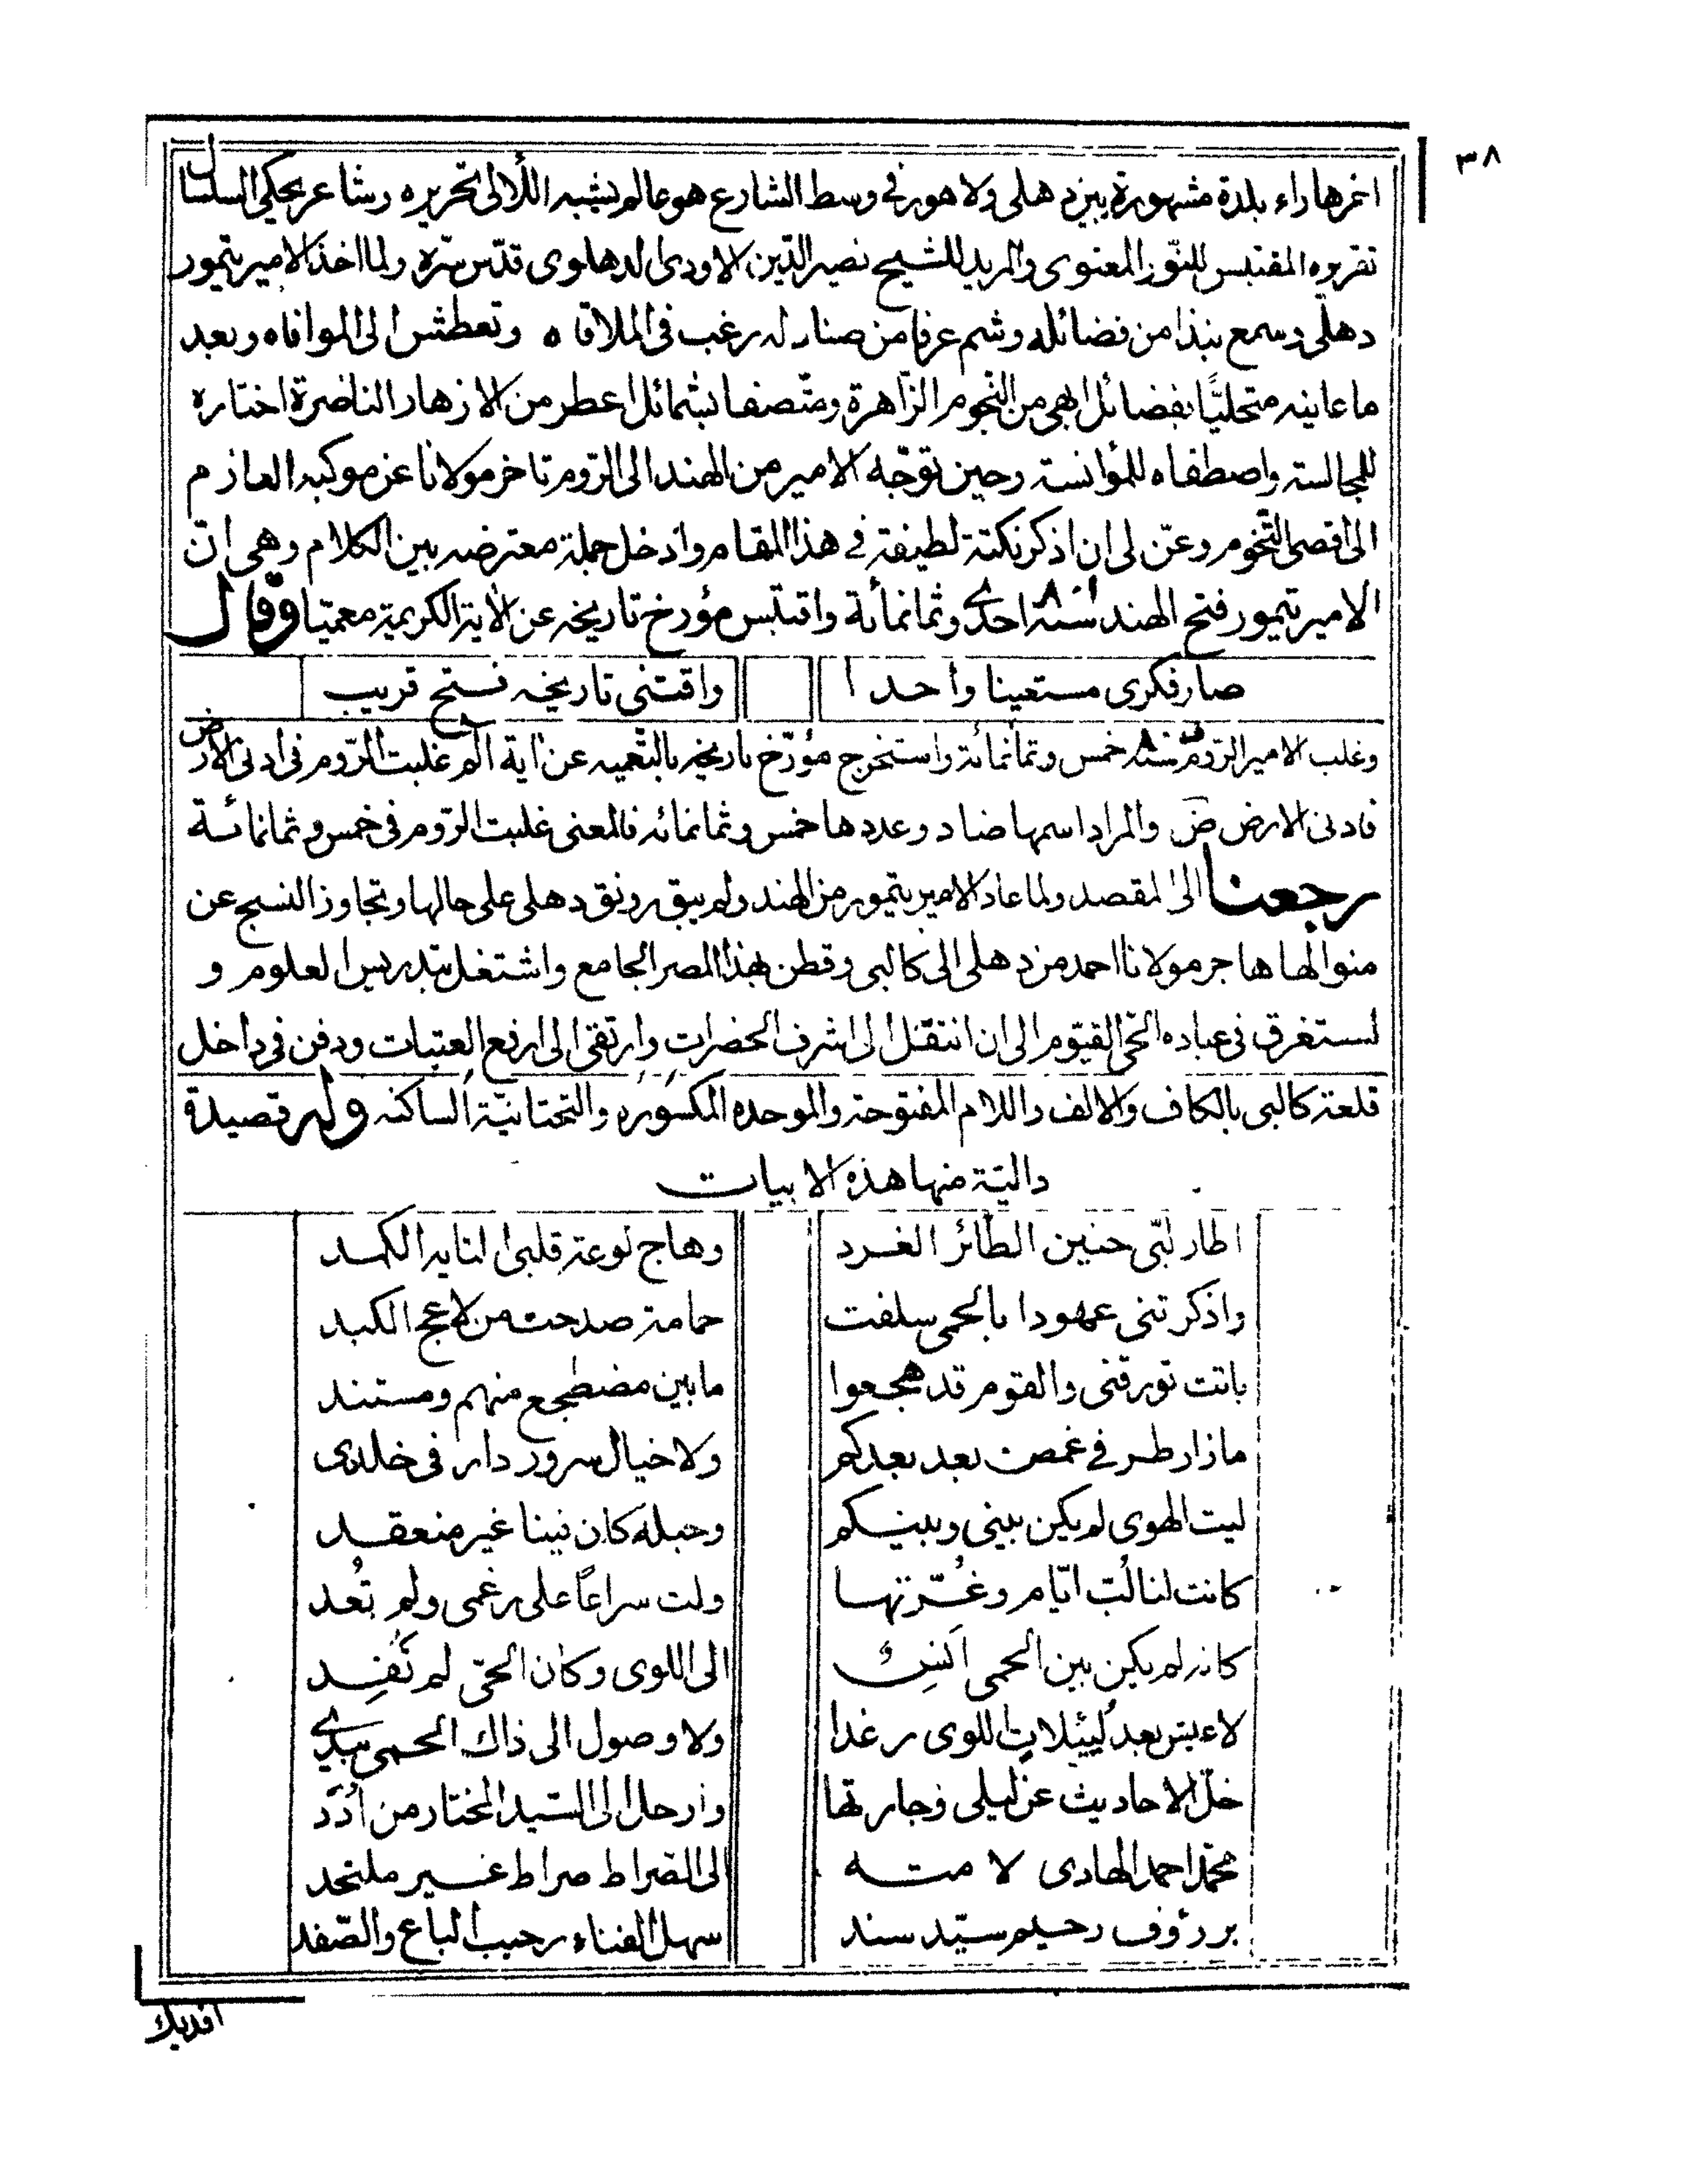 ٣٨
اخرها راء بلدة مشهورة بين دهلى ولاهور فے وسط الشارع هو عالم يشبه اللآلى تحريره وشاعر يحكى السلسال
تقريره المقتبس للنّور المعنوى والمريد للشيخ نصير الدّين الاودى الدهلوى قدّس سّره ولما اخذ الامير تيمور
دهلى وسمع نبذا من فضائله وشم عرفا من صنادله رغب فى الملاقاه وتعطش الى الموافاه وبعد
ما عاينه متحليًّا بفضائل ابهى من النّجوم الزّاهرة ومتّصفا بشمائل اعطر من الازهار الناضرة اختاره
للمجالسة واصطفاه للمؤانسة وحين توجّه الامير من الهند الى الرّوم تاخر مولانا عن موكبه العازم
الى اقصى التّخوم وعنّ لى ان اذكر نكتة لطيفة فے هذا المقام وادخل جملة معترضه بين الكلام وهى انّ
الامير تيمور فتح الهند سنة ٨٠١ احدے وثمانمأئة واقتبس مؤرخ تاريخه عن الاية الكريمة معمّيا وقال
صار فكرى مستعينا واحدا واقتنى تاريخه فتح قريب
وغلب الامير الرّوم سنة ٨٠٥ خمس وثمانمائة واستخرج مؤرّخ تاريخه بالتّعميه عن اية الم غلبت الرّوم فى ادنى الارض
فادنى الارض ض والمراد اسمها ضاد وعددها خمس وثمانمائه فالمعنى غلبت الرّوم فى خمس وثمانمائة
رجعنا الى المقصد ولما عاد الامير تيمور من الهند ولم يبق رونق دهلى على حالها وتجاوز النسج عن
منوالها هاجر مولانا احمد من دهلى الى كالپى وقطن بهذا المصر الجامع واشتغل بتدريس العلوم و
استغرق فى عباده الحّى القيّوم الى ان انتقل الى اشرف الحضرات وارتقى الى ارفع العتبات ودفن فى داخل
قلعة كالپى بالكاف والالف واللام المفتوحة والموحده المكسوره والتحتانيّة الساكنه وله قصيدة
داليّة منها هذه الابيات
اطار لبّى حنين الطّائر الغرد وهاج لوعة قلبى التايه الكمد
واذكرتنى عهودا بالحمى سلفت حمامة صدحت من لاعج الكبد
باتت تورقنى والقوم قد هجعوا ما بين مضطجع منهم ومستند
ما زار طرفے غمض بعد بعدكم ولا خيال سرور دار فى خلدى
ليت الهوى لم يكن بينى وبينكم وحبله كان بيننا غير منعقد
كانت لنا لُبّ ايّام وغُرّتها ولت سراعًا على رغمى ولم تُعد
كانه لم يكن بين الحمى انس الى اللوى وكان الحىّ لم تَفِد
لا عيش بعد لُييلات اللوى رغدا ولا وصول الى ذاك الحمى بيدے
خلّ الاحاديث عن ليلى وجارتها وارحل الى السّيد المختار من اُدَد
محمّد احمد الهادى لامته الى الصراط صراط غير ملتحد
بر رؤف رحيم سيّد سند سهل الفناء رحيب الباع والصّفد
افديك